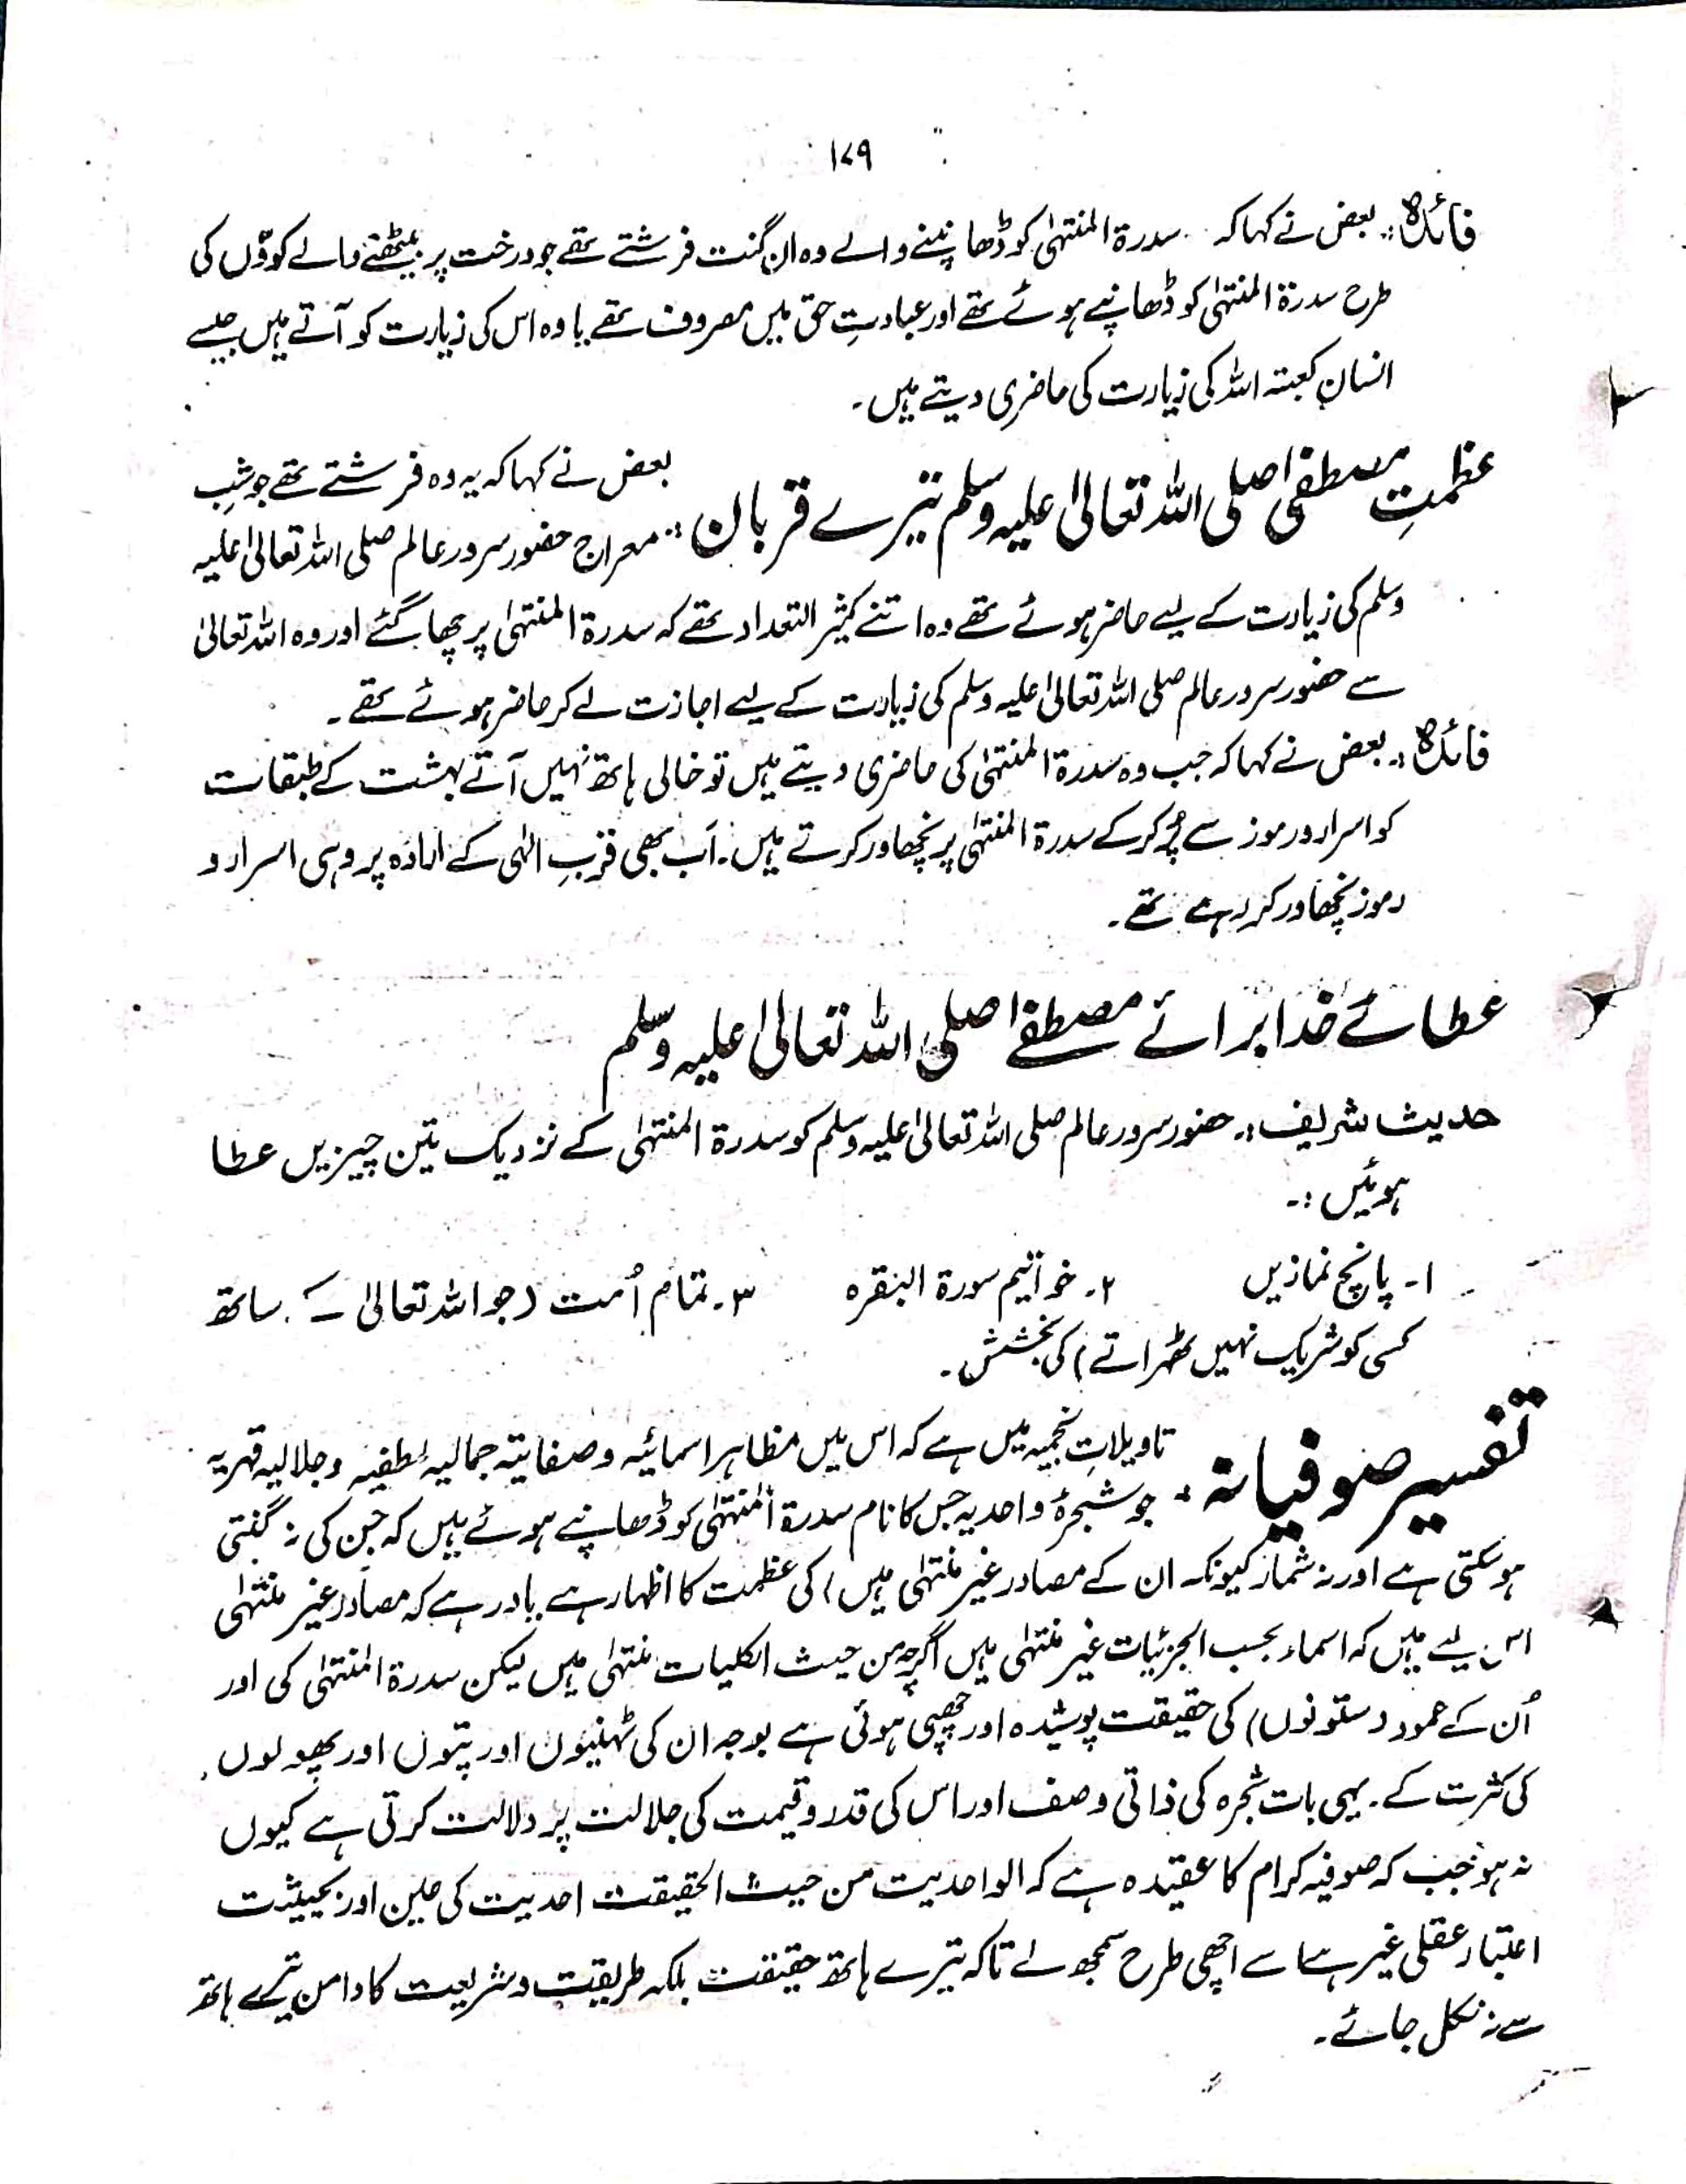 ۱۷۹
فائدہ:۔ بعض نے کہا کہ سدرۃ المنتہٰی کو ڈھانپنے والے وہ ان گنت فرشتے تھے جو درخت پر بیٹھنے والے کوّوں کی
طرح سدرۃ المنتہٰی کو ڈھانپے ہوئے تھے اور عبادتِ حق میں مصروف تھے یا وہ اس کی زیارت کو آتے ہیں جیسے
انسان کعبتہ اللہ کی زیارت کی حاضری دیتے ہیں۔
عظمتِ مصطفٰی صلی اللہ تعالیٰ علیہ وسلم تیرے قربان :۔ بعض نے کہا کہ یہ وہ فرشتے تھے جو شبِ
معراج حضور سرور عالم صلی اللہ تعالیٰ علیہ
وسلم کی زیارت کے لیے حاضر ہوئے تھے وہ اتنے کثیر التعداد تھے کہ سدرۃ المنتہٰی پر چھا گئے اور وہ اللہ تعالیٰ
سے حضور سرور عالم صلی اللہ تعالیٰ علیہ وسلم کی زیارت کے لیے اجازت لے کر حاضر ہوئے تھے۔
فائدہ:۔ بعض نے کہا کہ جب وہ سدرۃ المنتہٰی کی حاضری دیتے ہیں تو خالی ہاتھ نہیں آتے بہشت کے طبقات
کو اسرار و رموز سے پُر کر کے سدرۃ المنتہٰی پر نچھاور کرتے ہیں۔ اَب بھی قربِ الٰہی کے ارادہ پر وہی اسرار و
رموز نچھاور کر رہے تھے۔
عطائے خدا برائے مصطفےٰ صلی اللہ تعالیٰ علیہ وسلم
حدیث شریف:۔ حضور سرور عالم صلی اللہ تعالیٰ علیہ وسلم کو سدرۃ المنتہٰی کے نزدیک تین چیزیں عطا
ہوئیں :۔
۱۔ پانچ نمازیں ۲۔ خواتیم سورۃ البقرہ ۳۔ تمام اُمت (جو اللہ تعالیٰ کے ساتھ
کسی کو شریک نہیں ٹھہراتے) کی بخشش۔
تفسیر صوفیانہ :۔ تاویلاتِ نجمیہ میں ہے کہ اس میں مظاہر اسمائیہ و صفاتیہ جمالیہ لطفیہ و جلالیہ قہریہ
جو شجرۂ واحدیہ جس کا نام سدرۃ المنتہٰی کو ڈھانپے ہوئے ہیں کہ جن کی نہ گنتی
ہو سکتی ہے اور نہ شمار کیونکہ ان کے مصادر غیر منتہٰی ہیں) کی عظمت کا اظہار ہے یاد رہے کہ مصادر غیر منتہٰی
اس لیے ہیں کہ اسماء بحسب الجزئیات غیر منتہٰی ہیں اگرچہ من حیث الکلیات منتہٰی ہیں لیکن سدرۃ المنتہٰی کی اور
اُن کے عمود (ستونوں) کی حقیقت پوشیدہ اور چھپی ہوئی ہے بوجہ ان کی ٹہنیوں اور پتوں اور پھولوں
کی کثرت کے۔ یہی بات شجرہ کی ذاتی وصف اور اس کی قدر و قیمت کی جلالت پر دلالت کرتی ہے کیوں
نہ ہو جب کہ صوفیہ کرام کا عقیدہ ہے کہ الواحدیت من حیث الحقیقت احدیت کی عین اور بحیثیت
اعتبار عقلی غیر ہے اسے اچھی طرح سمجھ لے تاکہ تیرے ہاتھ حقیقت بلکہ طریقت و شریعت کا دامن تیرے ہاتھ
سے نہ نکل جائے۔